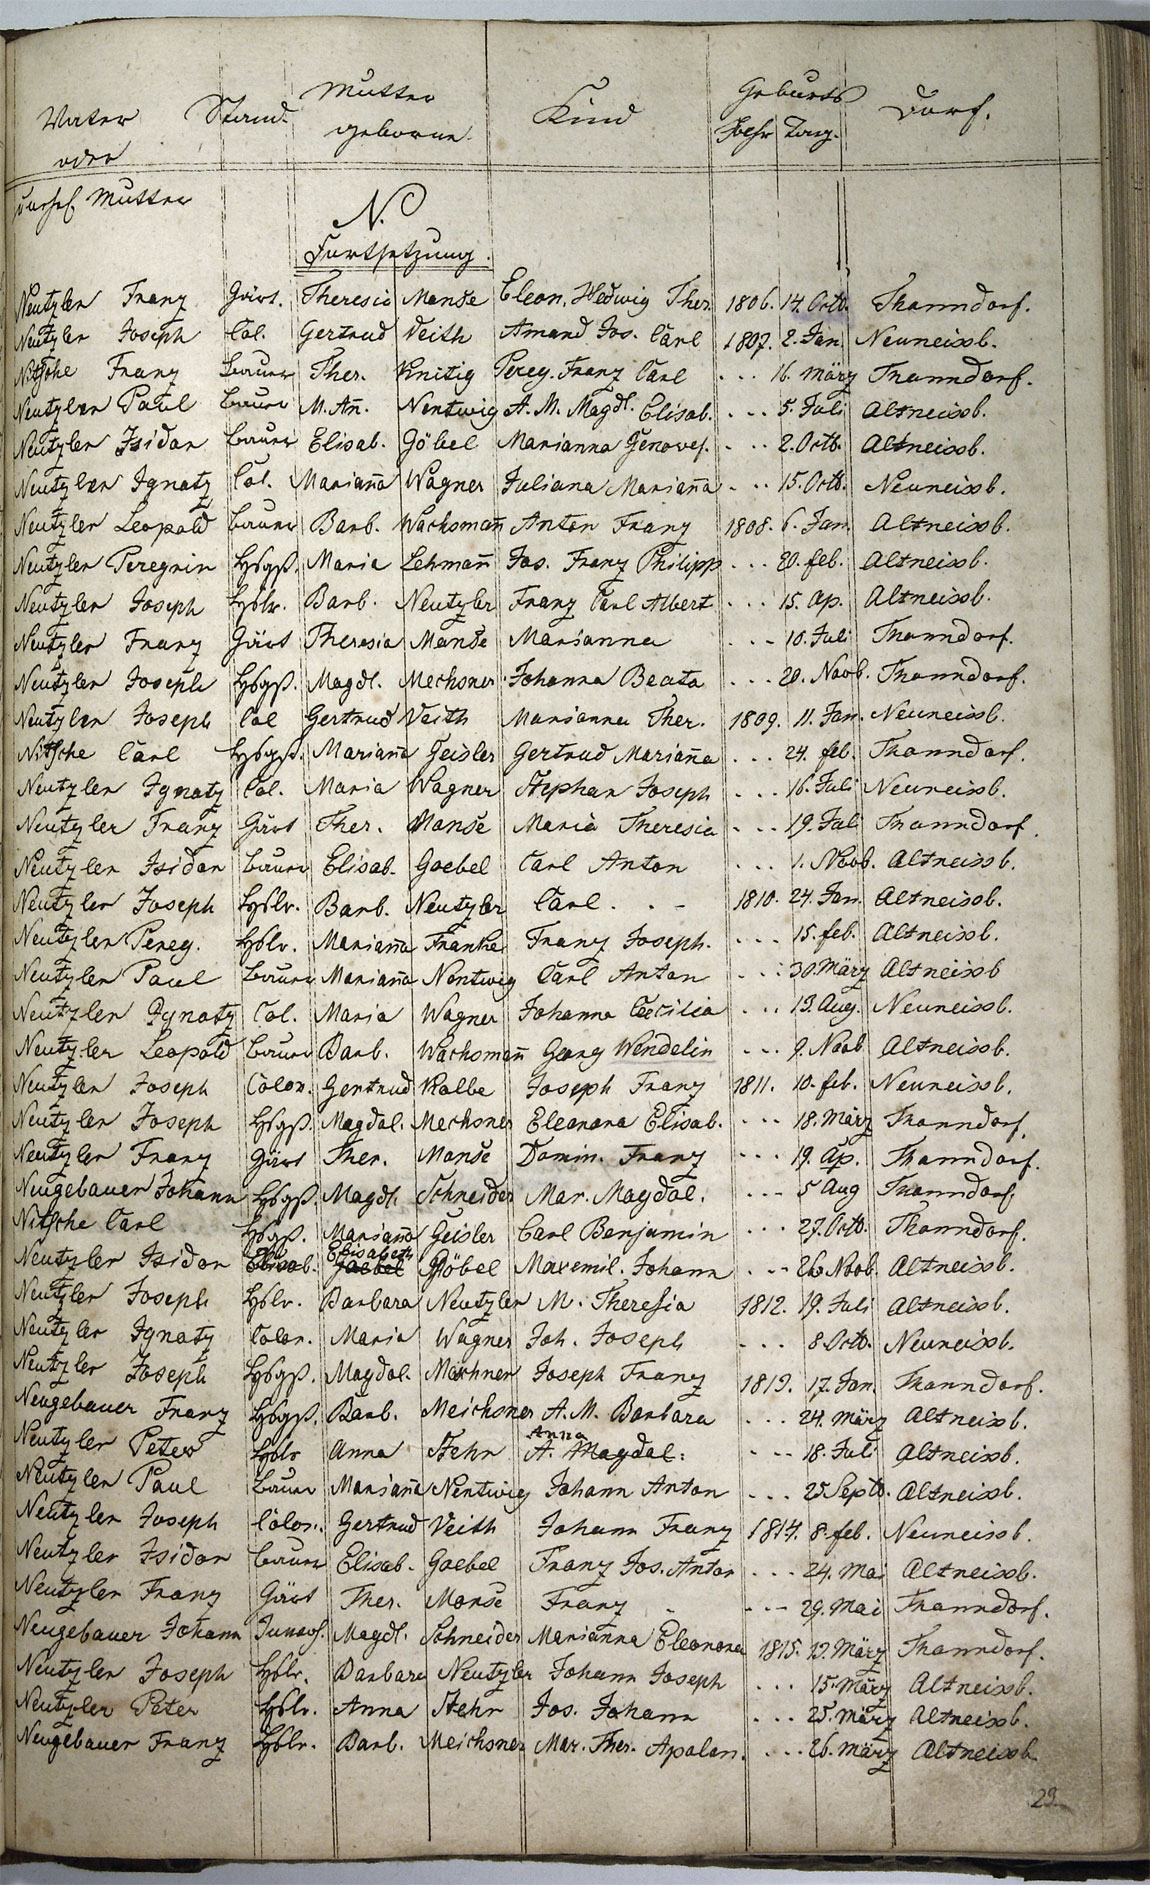 Vater Stand. Mutter Kind Geburts Dorf.
oder geborne. Jahr Tag.
Mutter
N.
Fortsetzung.
Neutzler Franz Gärt. Theresia Monse Eleon. Hedwig Ther. 1806. 14. Octb. Thanndorf.
Neutzler Joseph Col. Gertrud Veith Amand Jos. Carl 1807. 2. Jan. Neuneissb.
Nitsche Franz Bauer Ther. Knitig Pereg. Franz Carl . . . 16. März Thanndorf.
Neutzler Paul Bauer M. An̄. Nentwig A. M. Magdl. Elisab. . . . 5. Juli Altneissb.
Neutzler Isidor Bauer Elisab. Göbel Marianna Genovef. . . . 2. Octb. Altneissb.
Neutzler Ignatz Col. Marian̄a Wagner Juliana Marian̄a . . . 15. Octb. Neuneissb.
Neutzler Leopold Bauer Barb. Wachsman̄ Anton Franz 1808. 6. Jan. Altneissb.
Neutzler Peregrin Hsgß. Maria Lehman̄ Jos. Franz Philipp . . . 20. feb. Altneissb.
Neutzler Joseph Hslr. Barb. Neutzler Franz Carl Albert . . . 15. Ap. Altneissb.
Neutzler Franz Gärt Theresia Monse Marianna . . 10. Juli Thanndorf.
Neutzler Joseph Hsgß. Magdl. Mechsner Johanna Beata . . . 20. Novb. Thanndorf.
Neutzler Joseph Col Gertrud Veith Marianna Ther. 1809. 11. Jan. Neuneissb.
Nitsche Carl Hsgß. Marian̄a Geisler Gertrud Marian̄a . . . 24. feb. Thanndorf.
Neutzler Ignatz Col. Maria Wagner Stephan Joseph . . . 16. Juli Neuneissb.
Neutzler Franz Gärt Ther. Monse Maria Theresia . . . 19. Juli Thanndorf.
Neutzler Isidor Bauer Elisab. Goebel Carl Anton . . . 1. Novb. Altneissb.
Neutzler Joseph Hslr. Barb. Neutzler Carl . . - 1810. 24. Jan. Altneissb.
Neutzler Pereg. Hslr. Marian̄a Franke Franz Joseph. . . . 15. feb. Altneissb.
Neutzler Paul Bauer Marian̄a Nentwig Carl Anton . . . 30. März Altneissb
Neutzler Ignatz Col. Maria Wagner Johanna Caecilia . . . 13. Aug. Neuneissb.
Neutzler Leopold Bauer Barb. Wachsman̄ Georg Wendelin . . . 9. Novb Altneissb.
Neutzler Joseph Colon. Gertrud Kolbe Joseph Franz 1811. 10. feb. Neuneissb.
Neutzler Joseph Hsgß. Magdal. Mechsner Eleonora Elisab. . . . 18. März Thanndorf.
Neutzler Franz Gärt Ther. Monse Domin. Franz . . . 19. Ap. Thanndorf.
Neugebauer Johann Hsgß. Magdl. Schneider Mar. Magdal. . . . 5 Aug Thanndorf.
Nitsche Carl Hsgß. Marian̄a Geisler Carl Benjamin . . . 27. Octb. Thanndorf.
Neutzler Isidor Elisab. Elisabeth Goebel Göbel Maxemil. Johann . . . 26. Novb. Altneissb.
Neutzler Joseph Hslr. Barbara Neutzler M. Theresia 1812. 19. Juli Altneissb.
Neutzler Ignatz Colon. Maria Wagner Joh. Joseph . . . 8. Octb. Neuneissb.
Neutzler Joseph Hsgß. Magdal. Mechsner Joseph Franz 1813. 17. Jan. Thanndorf.
Neugebauer Franz Hsgß. Barb. Meichsner A. M. Barbara . . . 24. März Altneissb.
Anna
Neutzler Peter Hslr Anna Stehr A. Magdal: . . . 18. Juli Altneissb.
Neutzler Paul Bauer Marian̄a Nentwig Johann Anton . . . 25. Septb. Altneissb.
Neutzler Joseph Colon. Gertrud Veith Johann Franz 1814. 8. feb. Neuneissb.
Neutzler Isidor Bauer Elisab. Goebel Franz Jos. Anton . . . 24. Mai Altneissb.
Neutzler Franz Gärt Ther. Monse Franz - . . . 29. Mai Thanndorf.
Neugebauer Johann Magdl. Schneider Marianna Eleonora 1815. 13. März Thanndorf.
Neutzler Joseph Hslr. Barbara Neutzler Johann Joseph . . . 15. März Altneissb.
Neutzler Peter Hslr. Anna Stehr Jos. Johann . . . 25. März Altneissb.
Neugebauer Franz Hslr. Barb. Meichsner Mar. Ther. Apolon. . . . 26. März Altneissb.
29